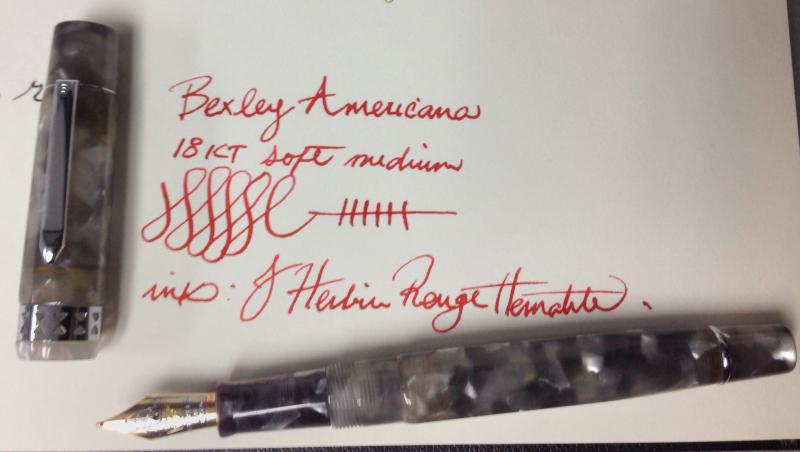 Bexley Americana
18 KT soft medium
ink: J Herbin Rouge Hematite.